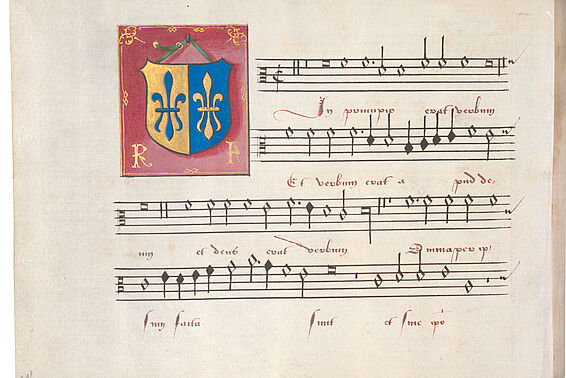 R A
In principio erat verbum
Et verbum erat a pud de,
um et deus erat verbum Omnia per ip,
sum facta sunt et sine ipō